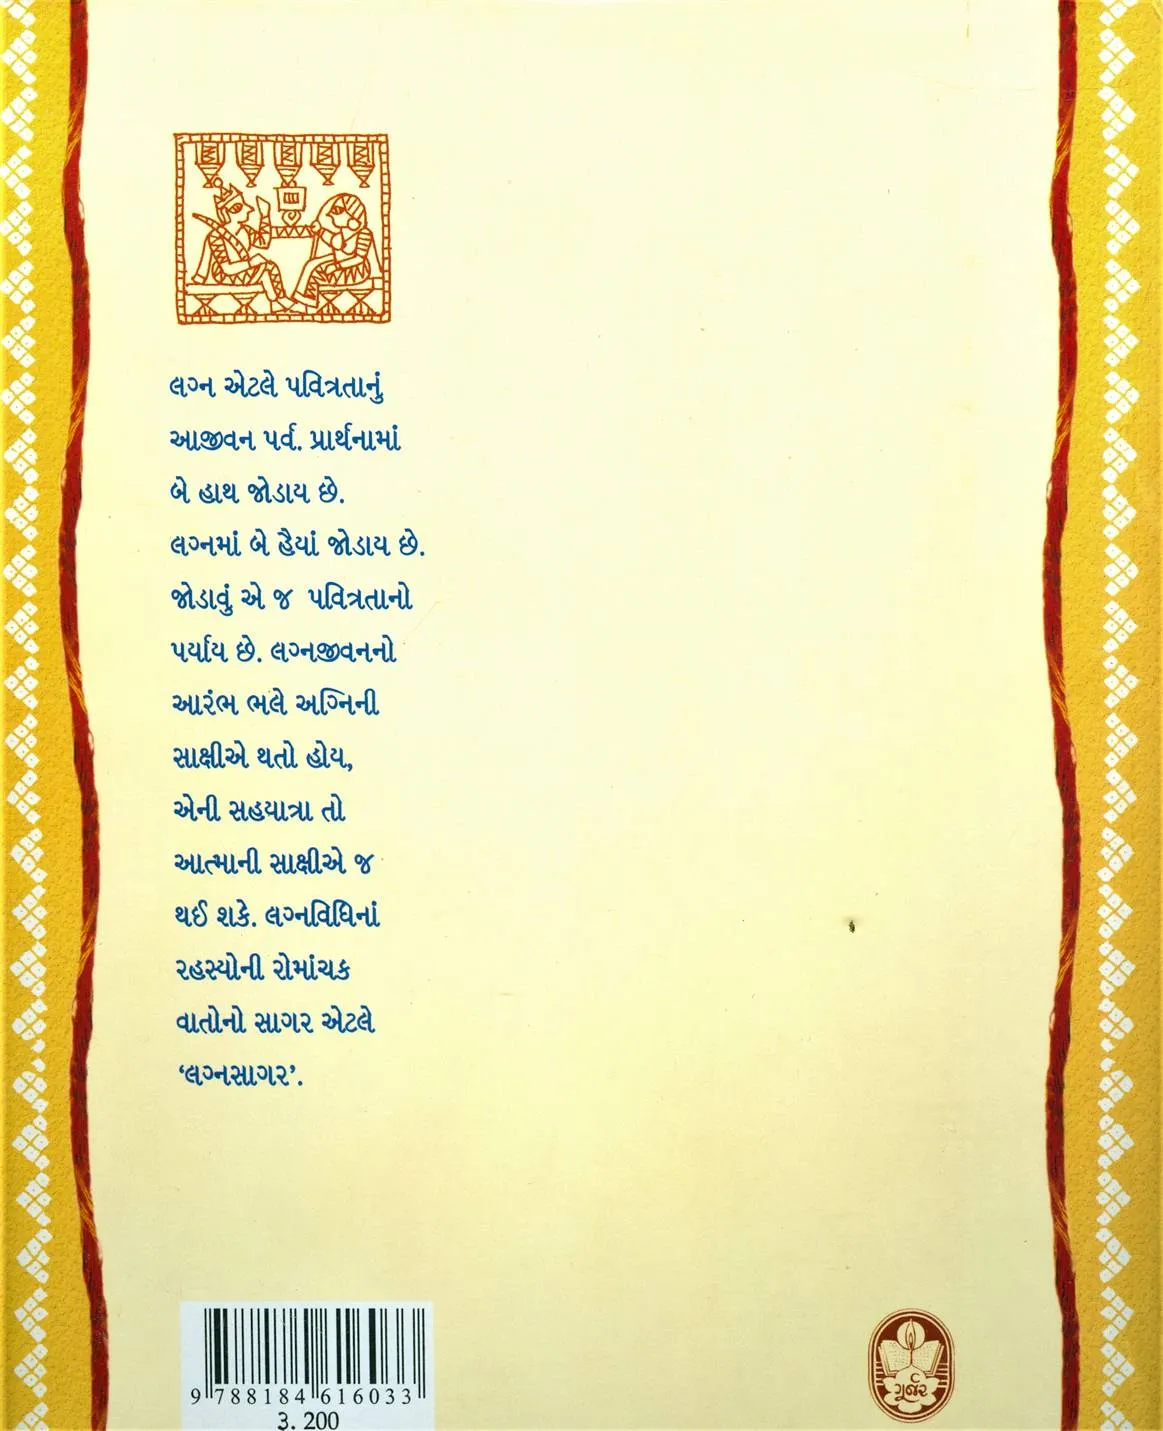 લગ્ન એટલે પવિત્રતાનું
આજીવન પર્વ. પ્રાર્થનામાં
બે હાથ જોડાય છે.
લગ્નમાં બે હૈયાં જોડાય છે.
જોડાવું એ જ પવિત્રતાનો
પર્યાય છે. લગ્નજીવનનો
આરંભ ભલે અગ્નિની
સાક્ષીએ થતો હોય,
એની સહયાત્રા તો
આત્માની સાક્ષીએ જ
થઈ શકે. લગ્નવિધિનાં
રહસ્યોની રોમાંચક
વાતોનો સાગર એટલે
‘લગ્નસાગર’.
9 788184 616033
રૂ. 200
ગૂર્જર